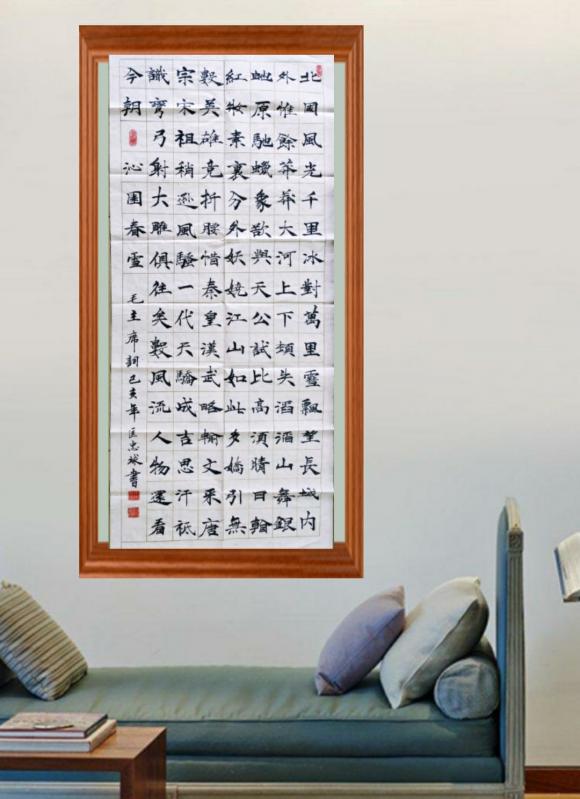 北國風光千里冰對萬里雪飄望長城内
外惟餘莽莽大河上下頓失滔滔山舞銀
虵原馳蠟象欲與天公試比高須晴日
紅妝素裹分外妖嬈江山如此多嬌引無
數英雄竞折腰惜秦皇漢武略輸文采唐
宗宋祖稍遜風騷一代天驕成吉思汗衹
識彎弓射大雕俱往矣數風流人物還看
今朝 沁園春雪 毛主席詞己亥年匡忠書